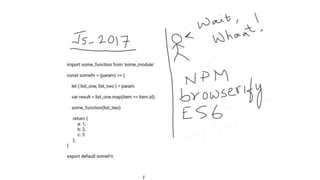 JS-2017
wait,
whaat!
import some_function from 'some_module'
const somefn = (param) => {
let { list_one, list_two } = param
var result = list_one.map(item => item.id);
some_function(list_two)
return {
a: 1,
b: 2,
c: 3
};
}
export default someFn
NPM
browserify
ES6